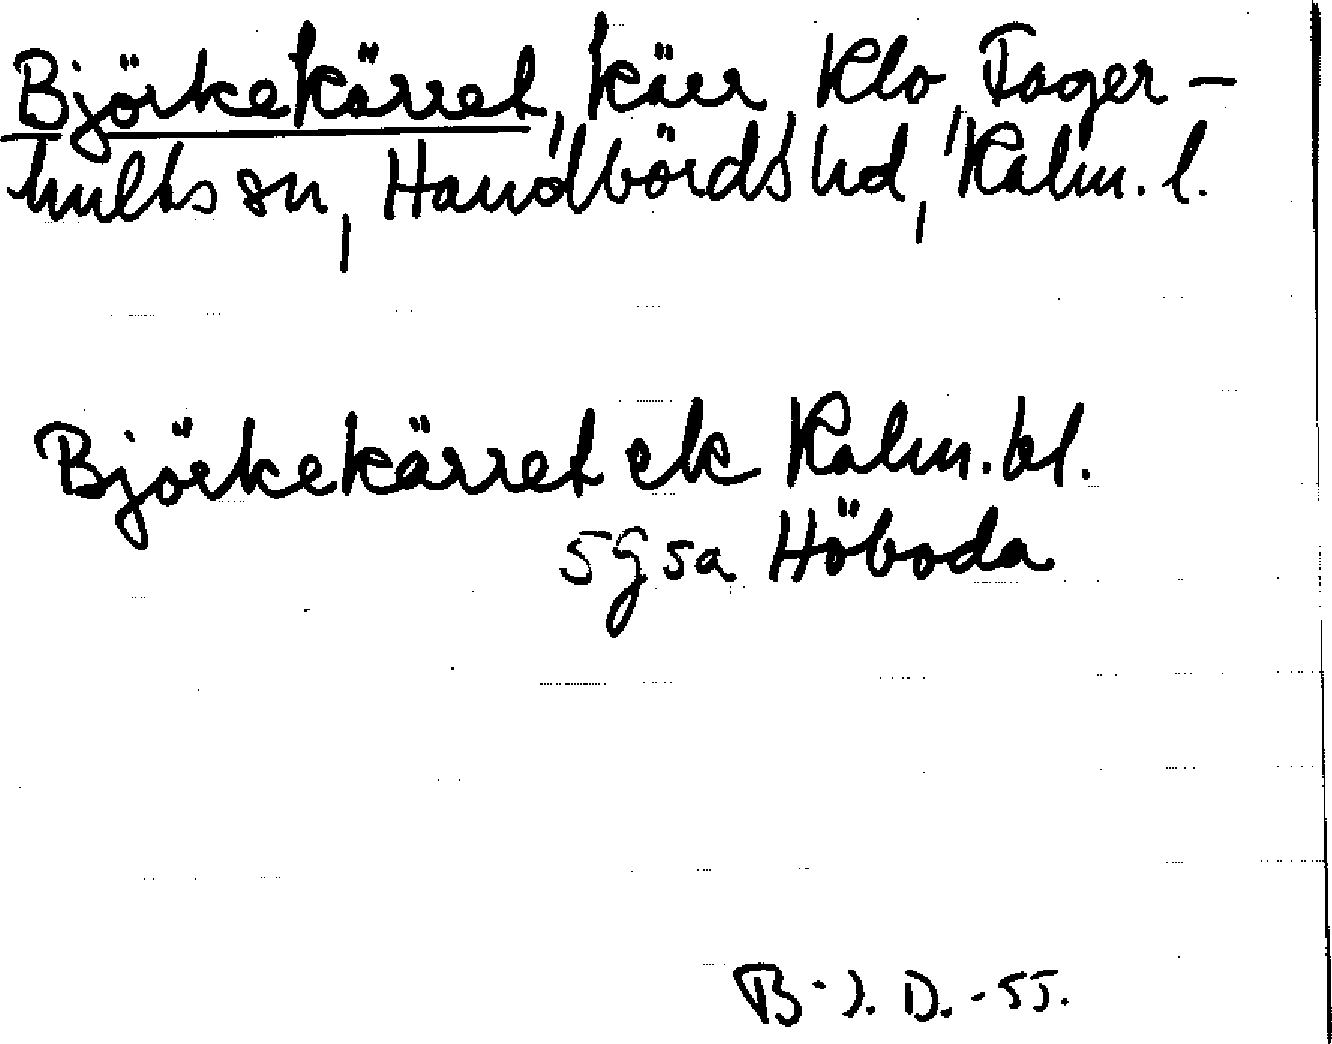 Björkekärret, kärr, Klo, Fager-
hults sn, Handbörds hd, Kalm. l.
Björkekärret ek Kalm. bl.
5 g 5a Höboda
B-J. D. -55.